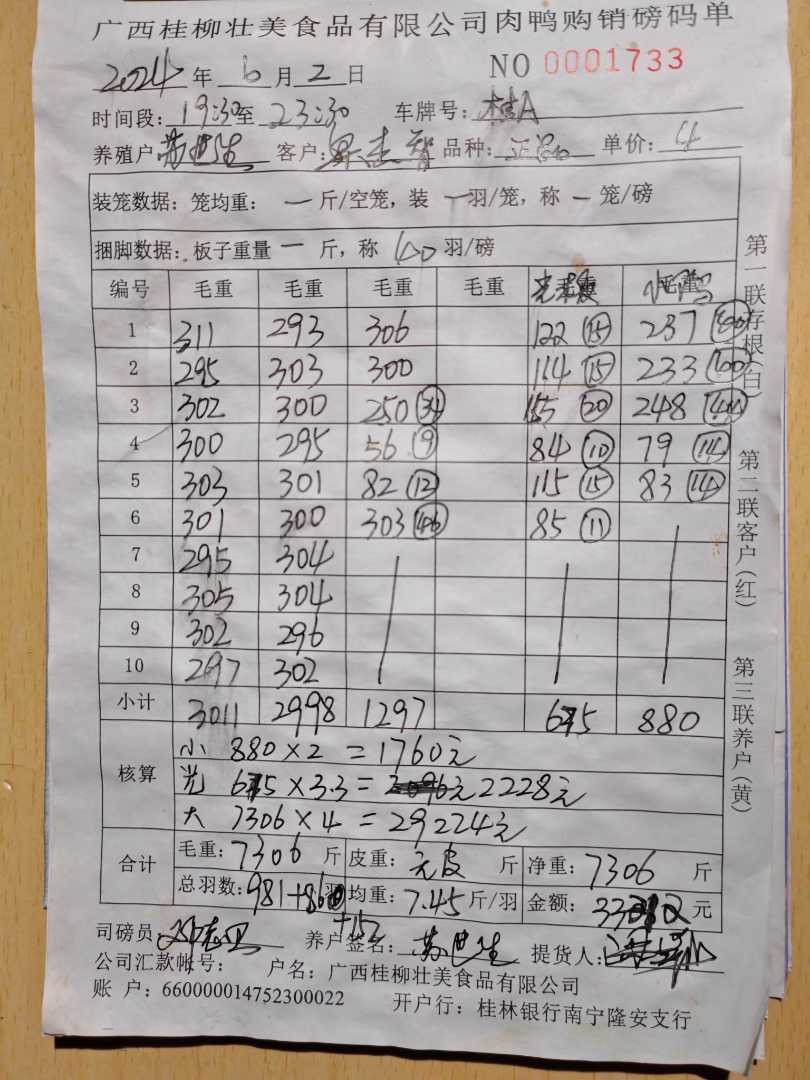 广西桂柳壮美食品有限公司肉鸭购销磅码单
2024年6月2日 NO 0001733
时间段:19:30至23:30 车牌号:桂A
养殖户:苏世生 客户: 品种: 单价:4
装笼数据:笼均重:一斤/空笼,装一羽/笼,称一笼/磅
捆脚数据:板子重量一斤,称40羽/磅
编号 毛重 毛重 毛重 毛重
1 311 293 306 122 (15) 237
2 295 303 300 114 (15) 233
3 302 300 250 (34) 155 (20) 248 (44)
4 300 295 56 (9) 84 (10) 79 (14)
5 303 301 82 (12) 115 (15) 83 (14)
6 301 300 303 (46) 85 (11)
7 295 304
8 305 304
9 302 296
10 297 302
小计 3011 2998 1297 675 880
核算
小 880×2=1760元
光 675×3.3= 2228元
大 7306×4=29224元
合计
毛重:7306斤 皮重:无皮斤 净重:7306斤
总羽数:981+86 羽 均重:7.45斤/羽 金额:33212元
+152
司磅员: 养户签名:苏世生 提货人:
公司汇款帐号: 户名:广西桂柳壮美食品有限公司
账户:660000014752300022 开户行:桂林银行南宁隆安支行
第一联存根(白)
第二联客户(红)
第三联养户(黄)